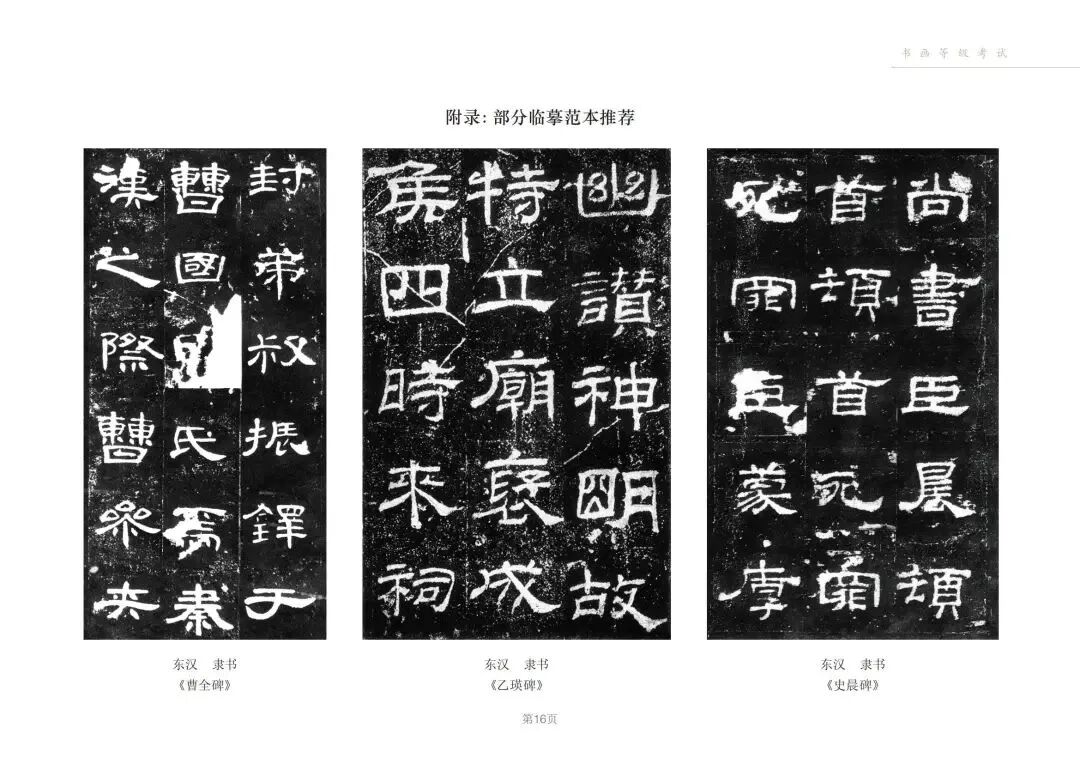 书画等级考试
附录：部分临摹范本推荐
封弟叔振鐸于
曹國氏焉秦
漢之際曹參夾
东汉 隶书
《曹全碑》
幽讚神明故
特立廟褒成
侯四時來祠
东汉 隶书
《乙瑛碑》
尚書臣晨頓
首頓首死罪
死罪臣蒙厚
东汉 隶书
《史晨碑》
第16页